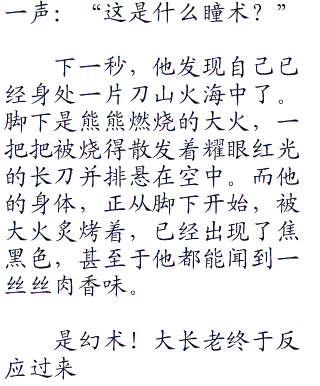 一声：“这是什么瞳术？”
下一秒，他发现自己已
经身处一片刀山火海中了。
脚下是熊熊燃烧的大火，一
把把被烧得散发着耀眼红光
的长刀并排悬在空中。而他
的身体，正从脚下开始，被
大火炙烤着，已经出现了焦
黑色，甚至于他都能闻到一
丝丝肉香味。
是幻术！大长老终于反
应过来